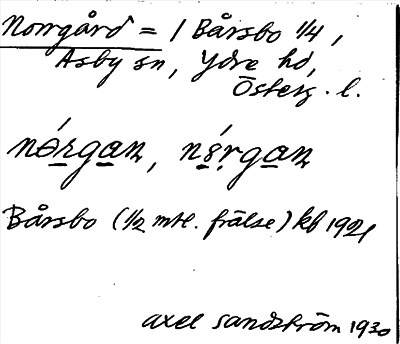 Norrgård = / Bårsbo 1/4,
Asby sn, Ydre hd,
Österg. l.
nǿrgan, nǿrgan
Bårsbo (1/2 mtl. frälse) kb 1921
Axel Sandström 1930